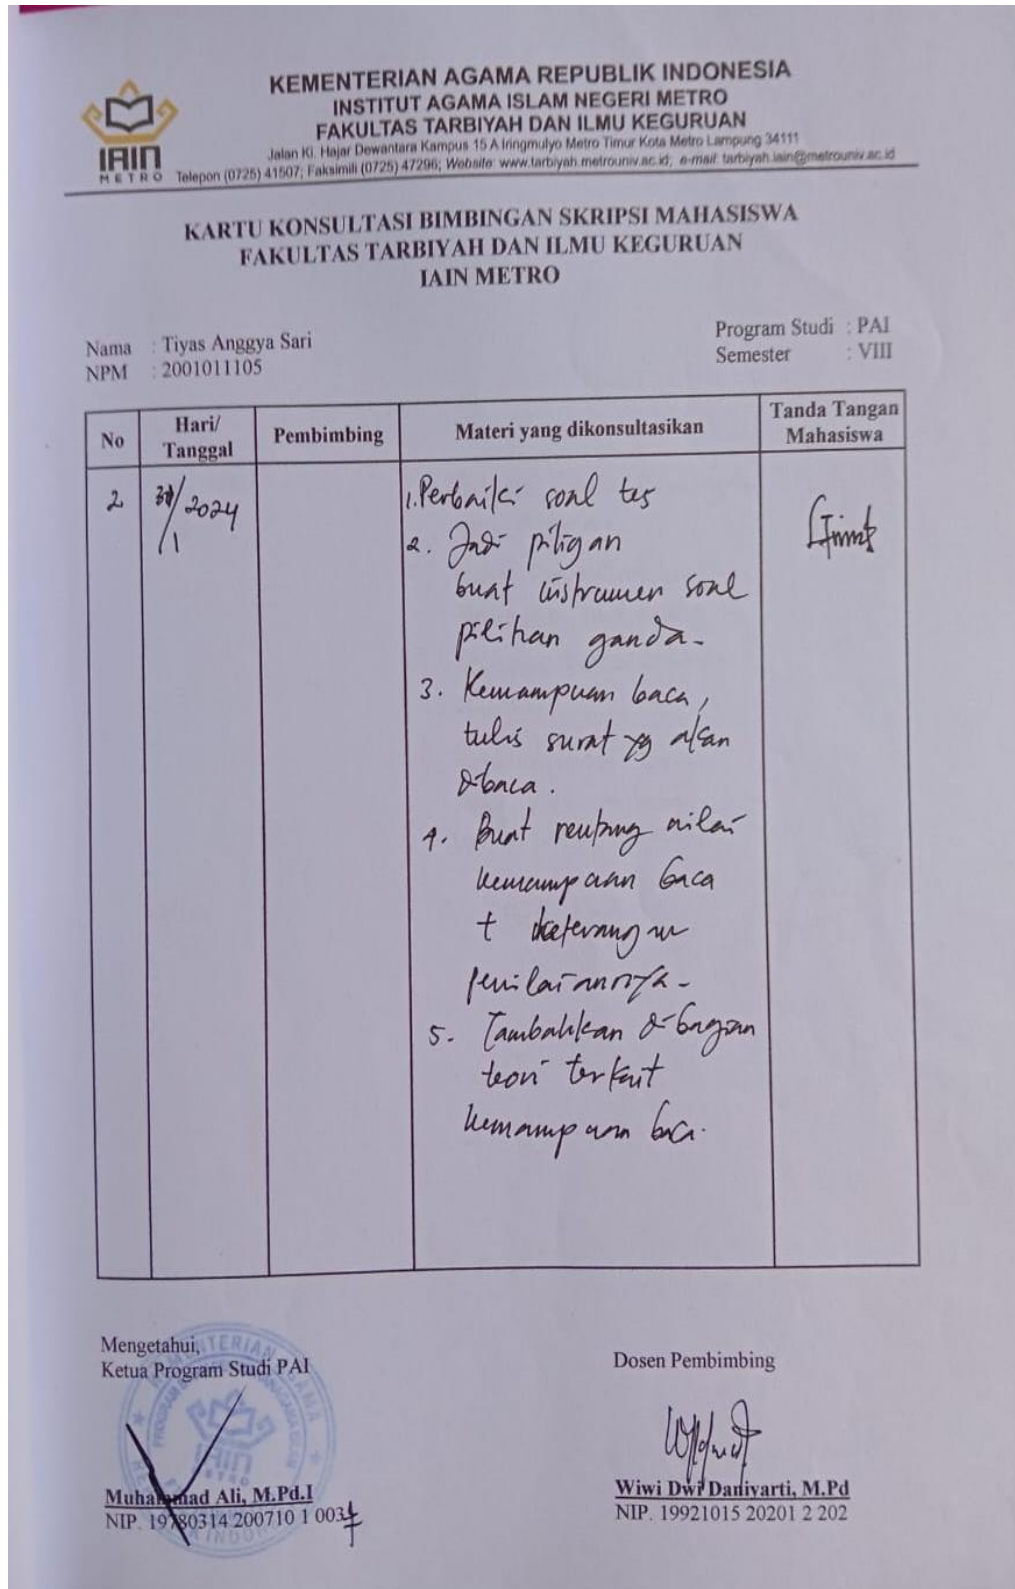 KEMENTERIAN AGAMA REPUBLIK INDONESIA
INSTITUT AGAMA ISLAM NEGERI METRO
FAKULTAS TARBIYAH DAN ILMU KEGURUAN
Jalan Ki. Hajar Dewantara Kampus 15 A Iringmulyo Metro Timur Kota Metro Lampung 34111
Telepon (0725) 41507; Faksimili (0725) 47296; Website: www.tarbiyah.metrouniv.ac.id; e-mail: tarbiyah.iain@metrouniv.ac.id
IAIN
METRO
KARTU KONSULTASI BIMBINGAN SKRIPSI MAHASISWA
FAKULTAS TARBIYAH DAN ILMU KEGURUAN
IAIN METRO
Nama : Tiyas Anggya Sari
NPM : 2001011105
Program Studi : PAI
Semester : VIII
No
Hari/
Tanggal
Pembimbing
Materi yang dikonsultasikan
Tanda Tangan
Mahasiswa
2
/2024
/1
1. Perbaiki soal tes
2. Jadi
buat instrumen soal
pilihan ganda.
3. Kemampuan baca,
tulis surat yg akan
dibaca.
4. Buat rentang nilai
kemampuan baca
+ keterangan
penilaiannya.
5. Tambahkan di bagian
teori terkait
kemampuan baca.
Mengetahui,
Ketua Program Studi PAI
Muhammad Ali, M.Pd.I
NIP. 19780314 200710 1 003
Dosen Pembimbing
Wiwi Dwi Daniyarti, M.Pd
NIP. 19921015 20201 2 202